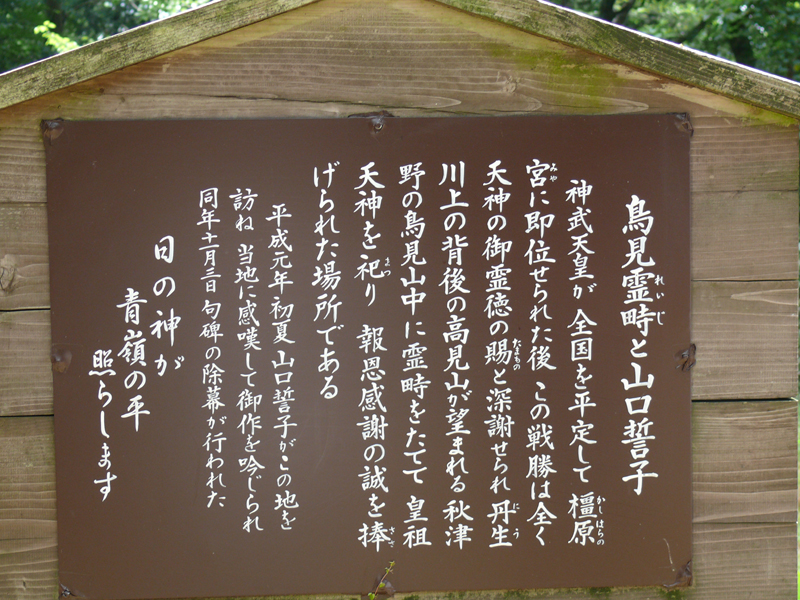 鳥見霊畤と山口誓子
れいじ
神武天皇が 全国を平定して 橿原
かしはらの
宮に即位せられた後 この戦勝は全く
みや
天神の御霊徳の賜と深謝せられ 丹生
たまもの
にう
川上の背後の高見山が望まれる 秋津
野の鳥見山中に霊畤をたてて 皇祖
天神を祀り 報恩感謝の誠を捧
まつ
ささ
げられた場所である
平成元年 初夏 山口誓子がこの地を
訪ね 当地に感嘆して御作を吟じられ
同年十一月三日 句碑の除幕が行われた
日の神が
青嶺の平
照らします